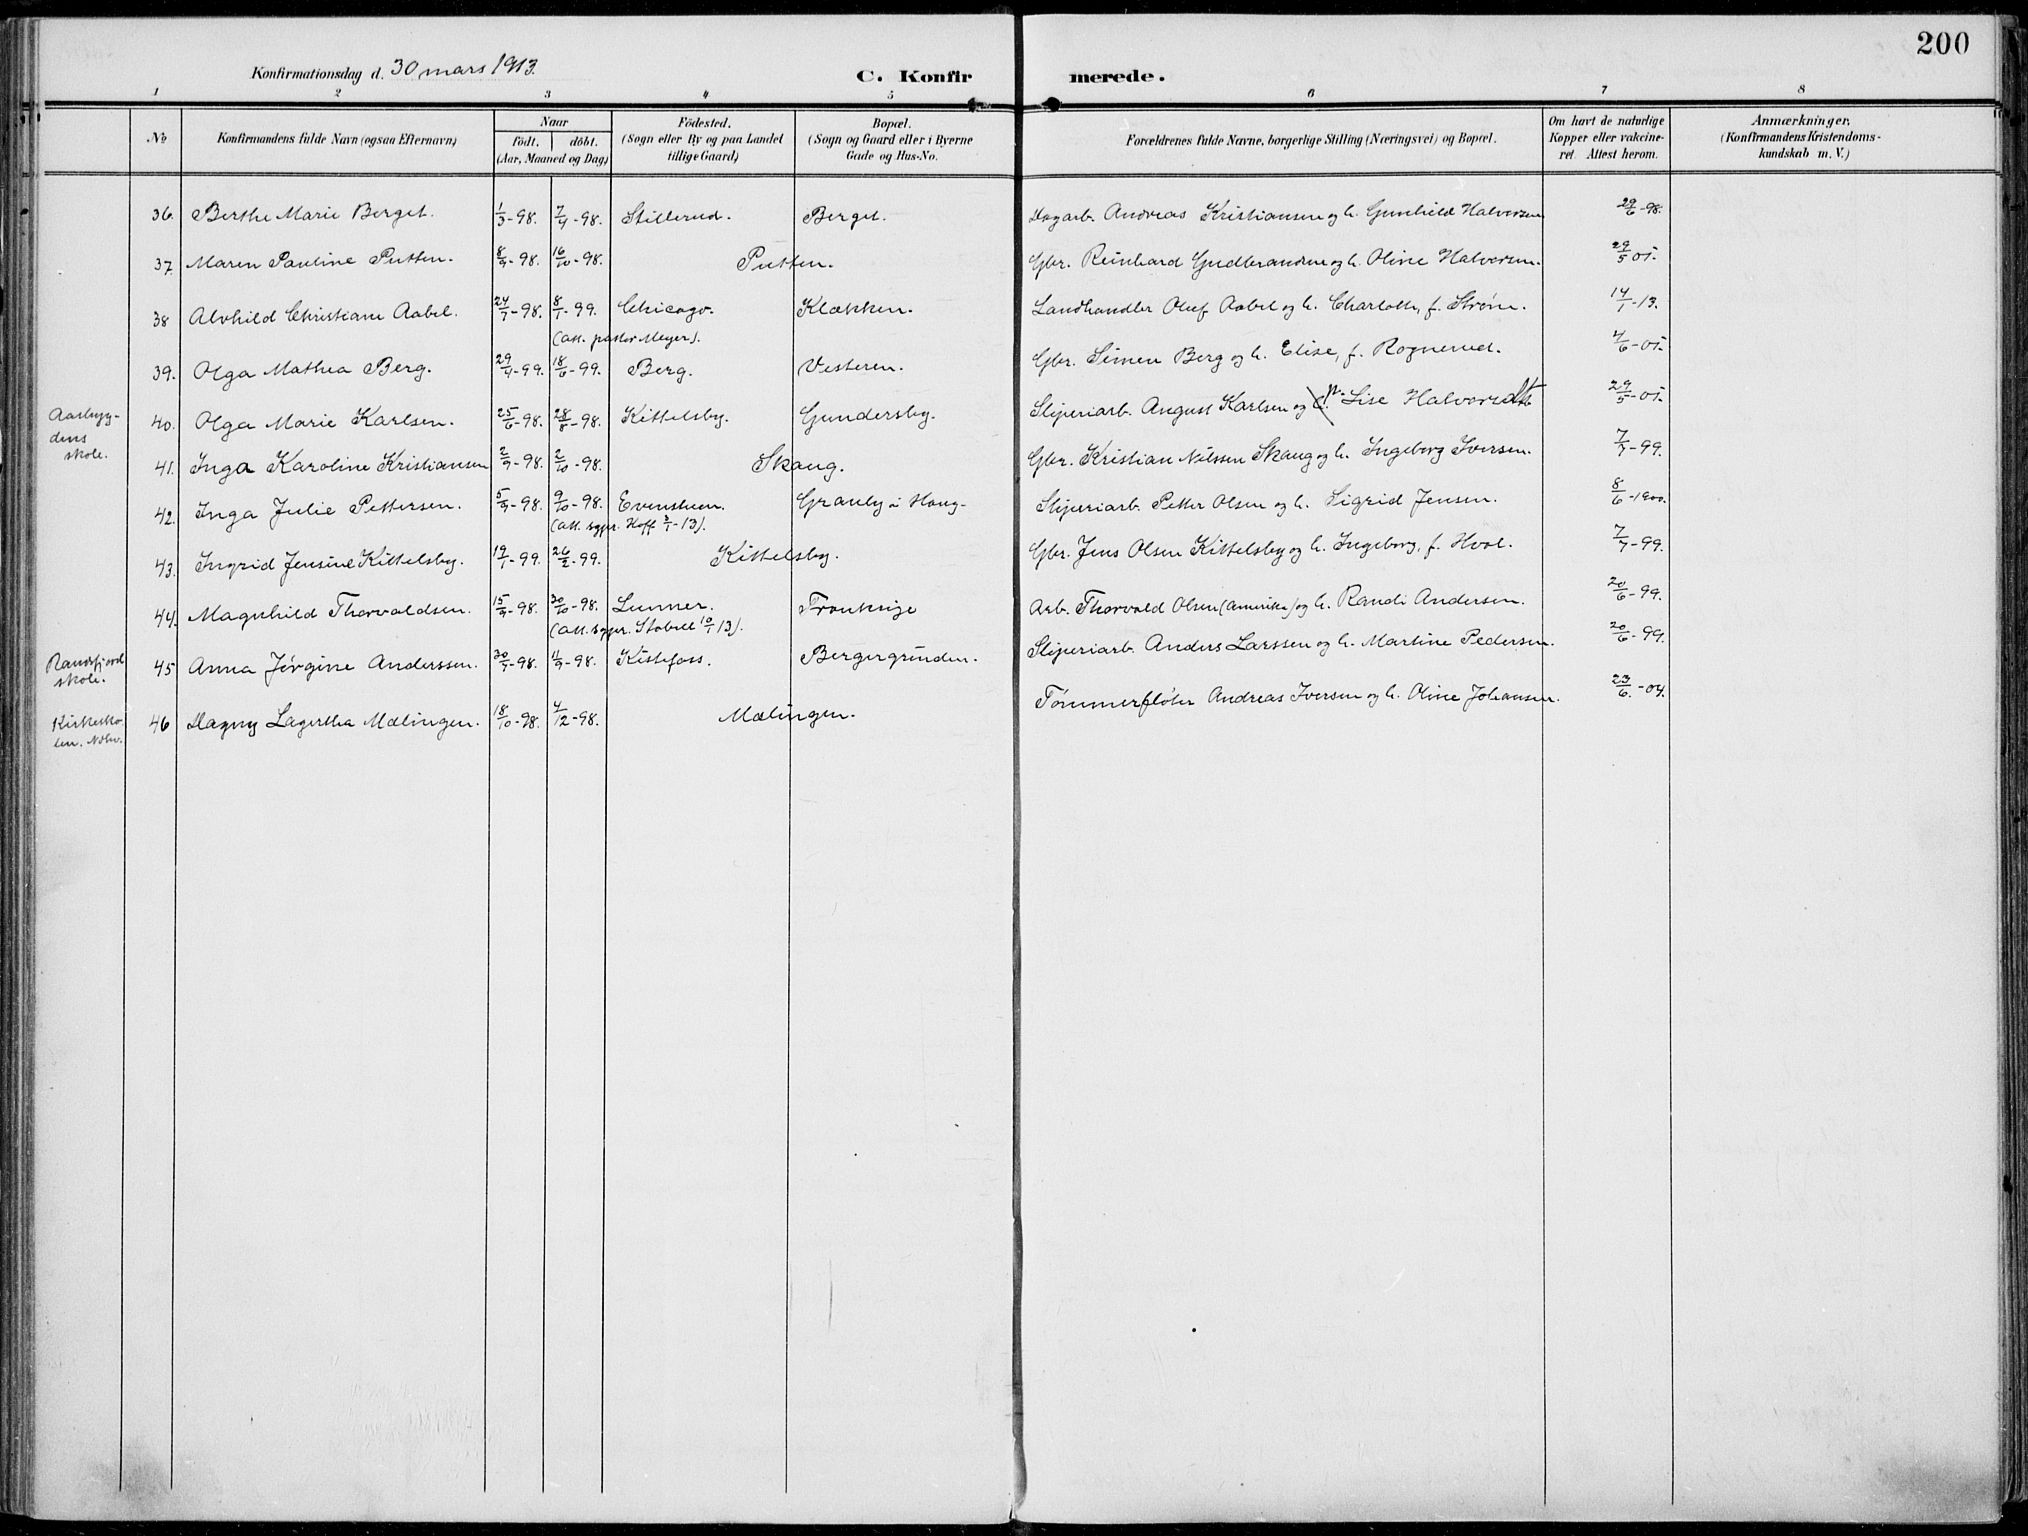 200
Konfirmationsdag d. 30 mars 1913.
C. Konfirmerede.
1 2 3 4 5 6 7 8
No
Konfirmandens fulde Navn (ogsaa Efternavn)
Naar
født. døbt.
(Aar, Maaned og Dag)
Fødested.
(Sogn eller By og paa Landet
tillige Gaard)
Bopæl.
(Sogn og Gaard eller i Byerne
Gade og Hus-No.
Forældrenes fulde Navne, borgerlige Stilling (Næringsvei) og Bopæl.
Om havt de naturlige
Kopper eller vakcine-
ret. Attest herom.
Anmærkninger.
(Konfirmandens Kristendoms-
kundskab m. V.)
36. Berthe Marie Berget. 1/3-98. 7/4-98. Stillerud. Berget. Dagarb. Andreas Kristiansen og h. Gunhild Halvorsen 29/6-98.
37. Maren Pauline Putten. 8/9-98. 16/10-98. Putten. Gbr. Reinhard Gudbrandsen og h. Oline Halvorsen. 29/5 05.
38 Alvhild Christiane Aabel. 24/7-98. 8/1-99. Chicago. Klækken. Landhandler Oluf Aabel og h. Charlotte, f. Strøm. 14/1-13.
(att. pastor Meyer).
39. Olga Mathea Berg. 29/4-99. 18/6-99. Berg. Vesteren. Gbr. Simen Berg og h. Elise, f. Rognerud. 4/6-05.
Aasbyg-
dens
skole.
40. Olga Marie Karlsen. 25/6-98. 28/8-98. Kittelsby. Gundersby. Sliperiarb. August Karlsen og Lise Halvorsdt 29/5-05.
41. Inga Karoline Kristiansen 2/9-98. 2/10-98. Skaug. Gbr. Kristian Nilssen Skaug og h. Ingeborg Iversen. 7/7-99.
42. Inga Julie Pettersen. 5/9-98. 9/10-98. Evenstuen. Granby i Haug. Sliperiarb. Petter Olsen og h. Sigrid Jensen. 8/6-1900.
(att. sgpr. Hoff 3/1-13).
43. Ingrid Jensine Kittelsby. 19/1-99. 26/2-99. Kittelsby. Gbr. Jens Olsen Kittelsby og h. Ingeborg, f. Hval. 7/7-99.
44. Magnhild Thorvaldsen. 15/9-98. 30/10-98. Lunner. Trantsige Arb. Thorvald Olsen (Amerika) og h. Randi Andersen. 20/6-99.
(att. sgpr. Stabell 10/1 13).
Randsfjord
skole.
45 Anna Jørgine Anderssen. 30/7-98. 11/9-98. Kistefoss. Bergergrinden. Sliperiarb. Anders Larssen og h. Martine Pedersen. 20/6-99.
46 Dagny Lagertha Mælingen. 18/10-98. 4/12-98. Mælingen. Tømmerfløter Andreas Iversen og h. Oline Johansen. 23/6-04.